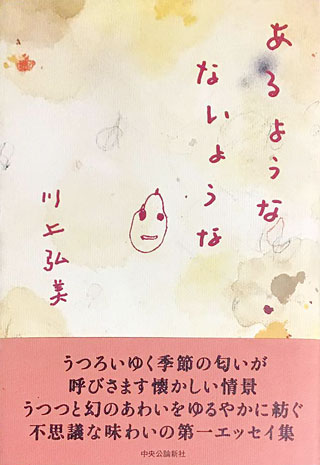 あるような
ないような
川上弘美
うつろいゆく季節の匂いが
呼びさます懐かしい情景
うつつと幻のあわいをゆるやかに紡ぐ
不思議な味わいの第一エッセイ集
中央公論新社